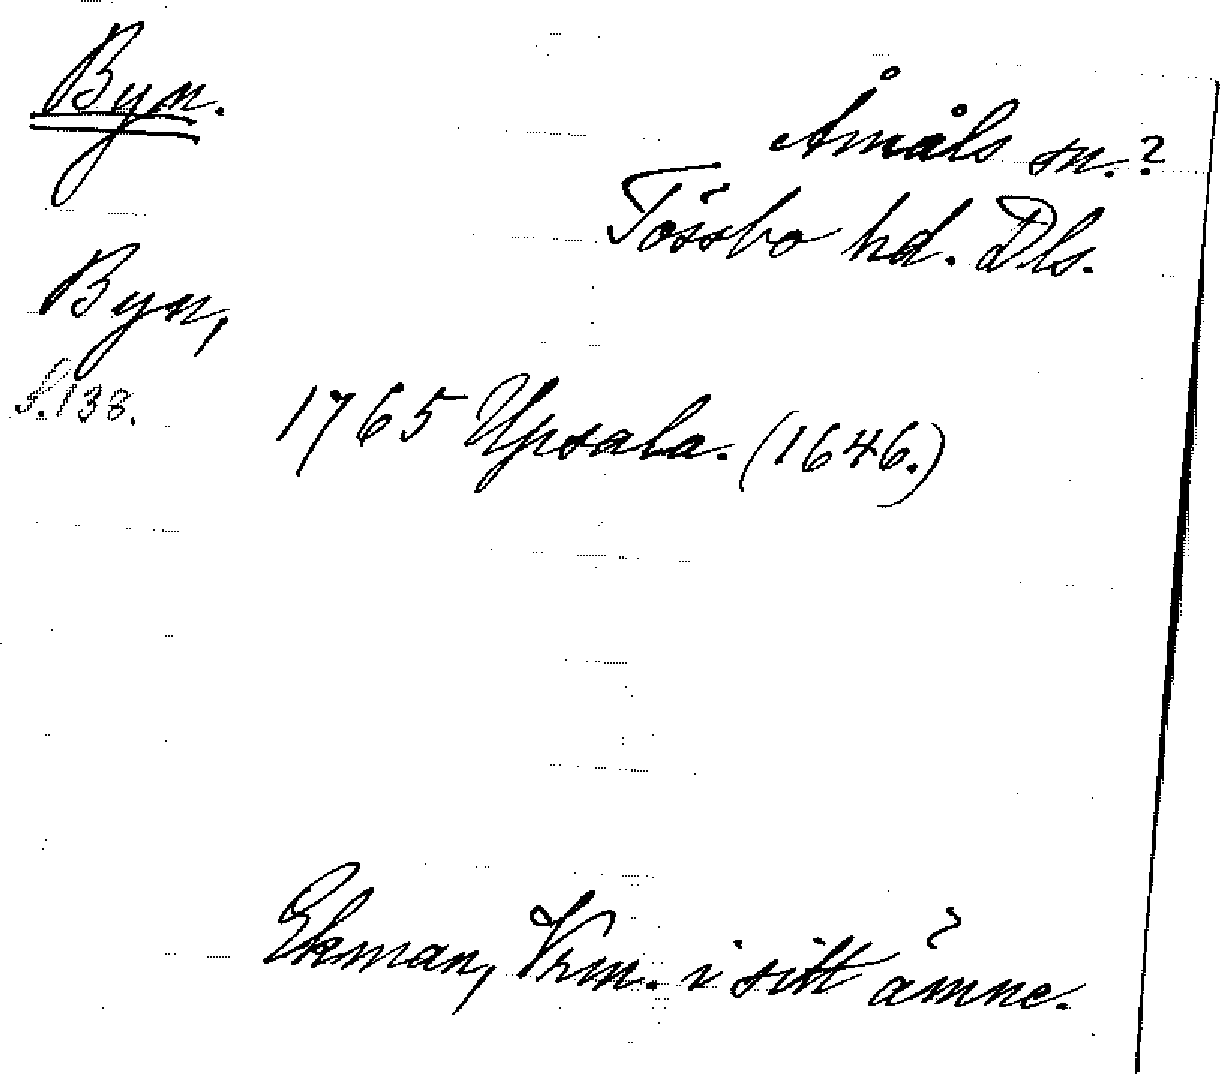 Byn.
Åmåls sn.?
Tössbo hd. Dls.
Byn,
S. 138.
1765 Upsala. (1646.)
Ekman, Vrm. i sitt ämne.